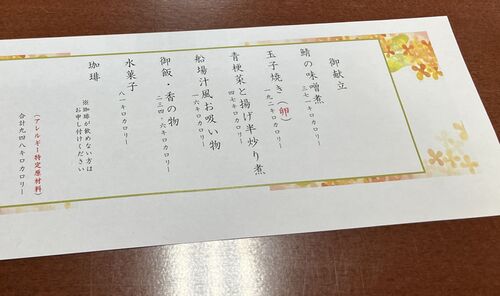 御献立
鯖の味噌煮
三七一キロカロリー
玉子焼き(卵)
一九二キロカロリー
青梗菜と揚げ半炒り煮
四七キロカロリー
船場汁風お吸い物
一六キロカロリー
御飯・香の物
二三四・六キロカロリー
水菓子
八一キロカロリー
珈琲
※珈琲が飲めない方は
お申し付けください
(アレルギー特定原材料)
合計九四八キロカロリー